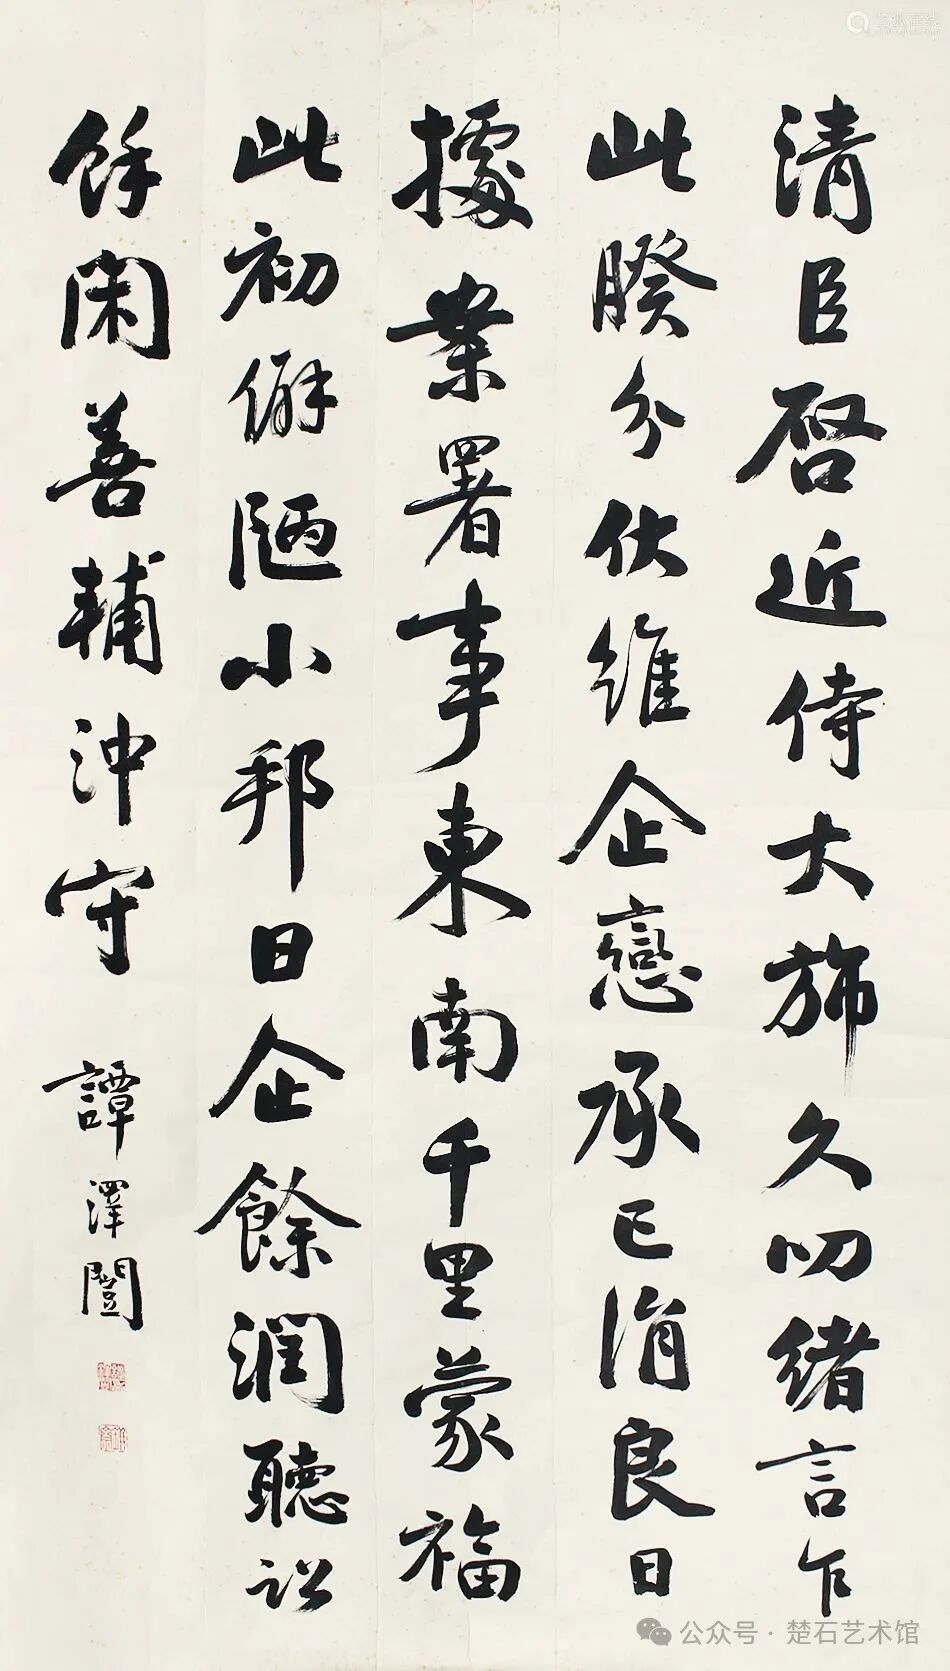 清臣啓近侍大旆久叨緒言乍
此暌分伏維企戀承已涓良日
據案署事東南千里蒙福
此初僻陋小邦日企餘潤聽訟
餘閑善輔沖守
譚澤闓
公众号·楚石艺术馆